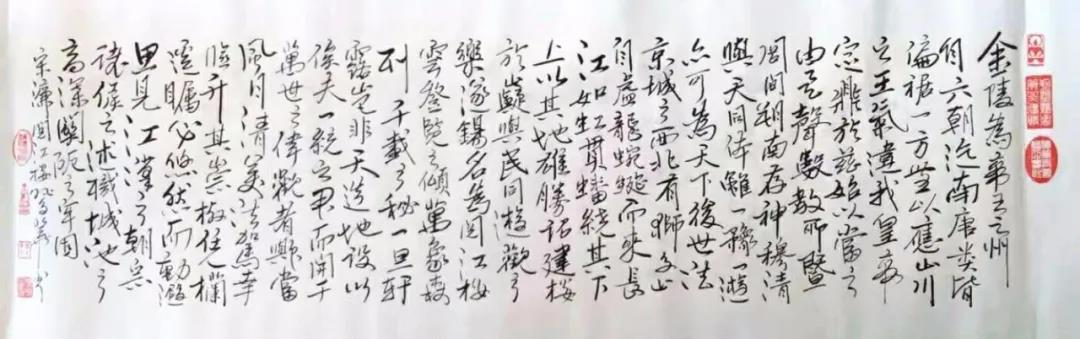 金陵為帝王之州
自六朝迄南唐类皆
偏据一方無以應山川
之王氣逮我皇帝
定鼎於茲始以當之
由是聲教所暨
罔間朔南存神穆清
與天同体雖一豫一遊
亦可為天下後世法
京城之西北有獅子山
自盧龍蜿蜒而來長
江如虹貫蟠繞其下
上以其地雄勝詔建樓
於巔與民同遊觀之
樂遂錫名為閱江樓
雲登覽之傾萬象森
列千載之秘一旦軒
露豈非天造地設以
俟夫一統之君而開千
萬世之偉觀者歟當
風日清美法駕幸
臨升其崇椒凭欄
遥矚必悠然而動遐
思見江漢之朝宗
諸侯之述職城池之
高深關阨之牢固
宋濂閱江樓記 書